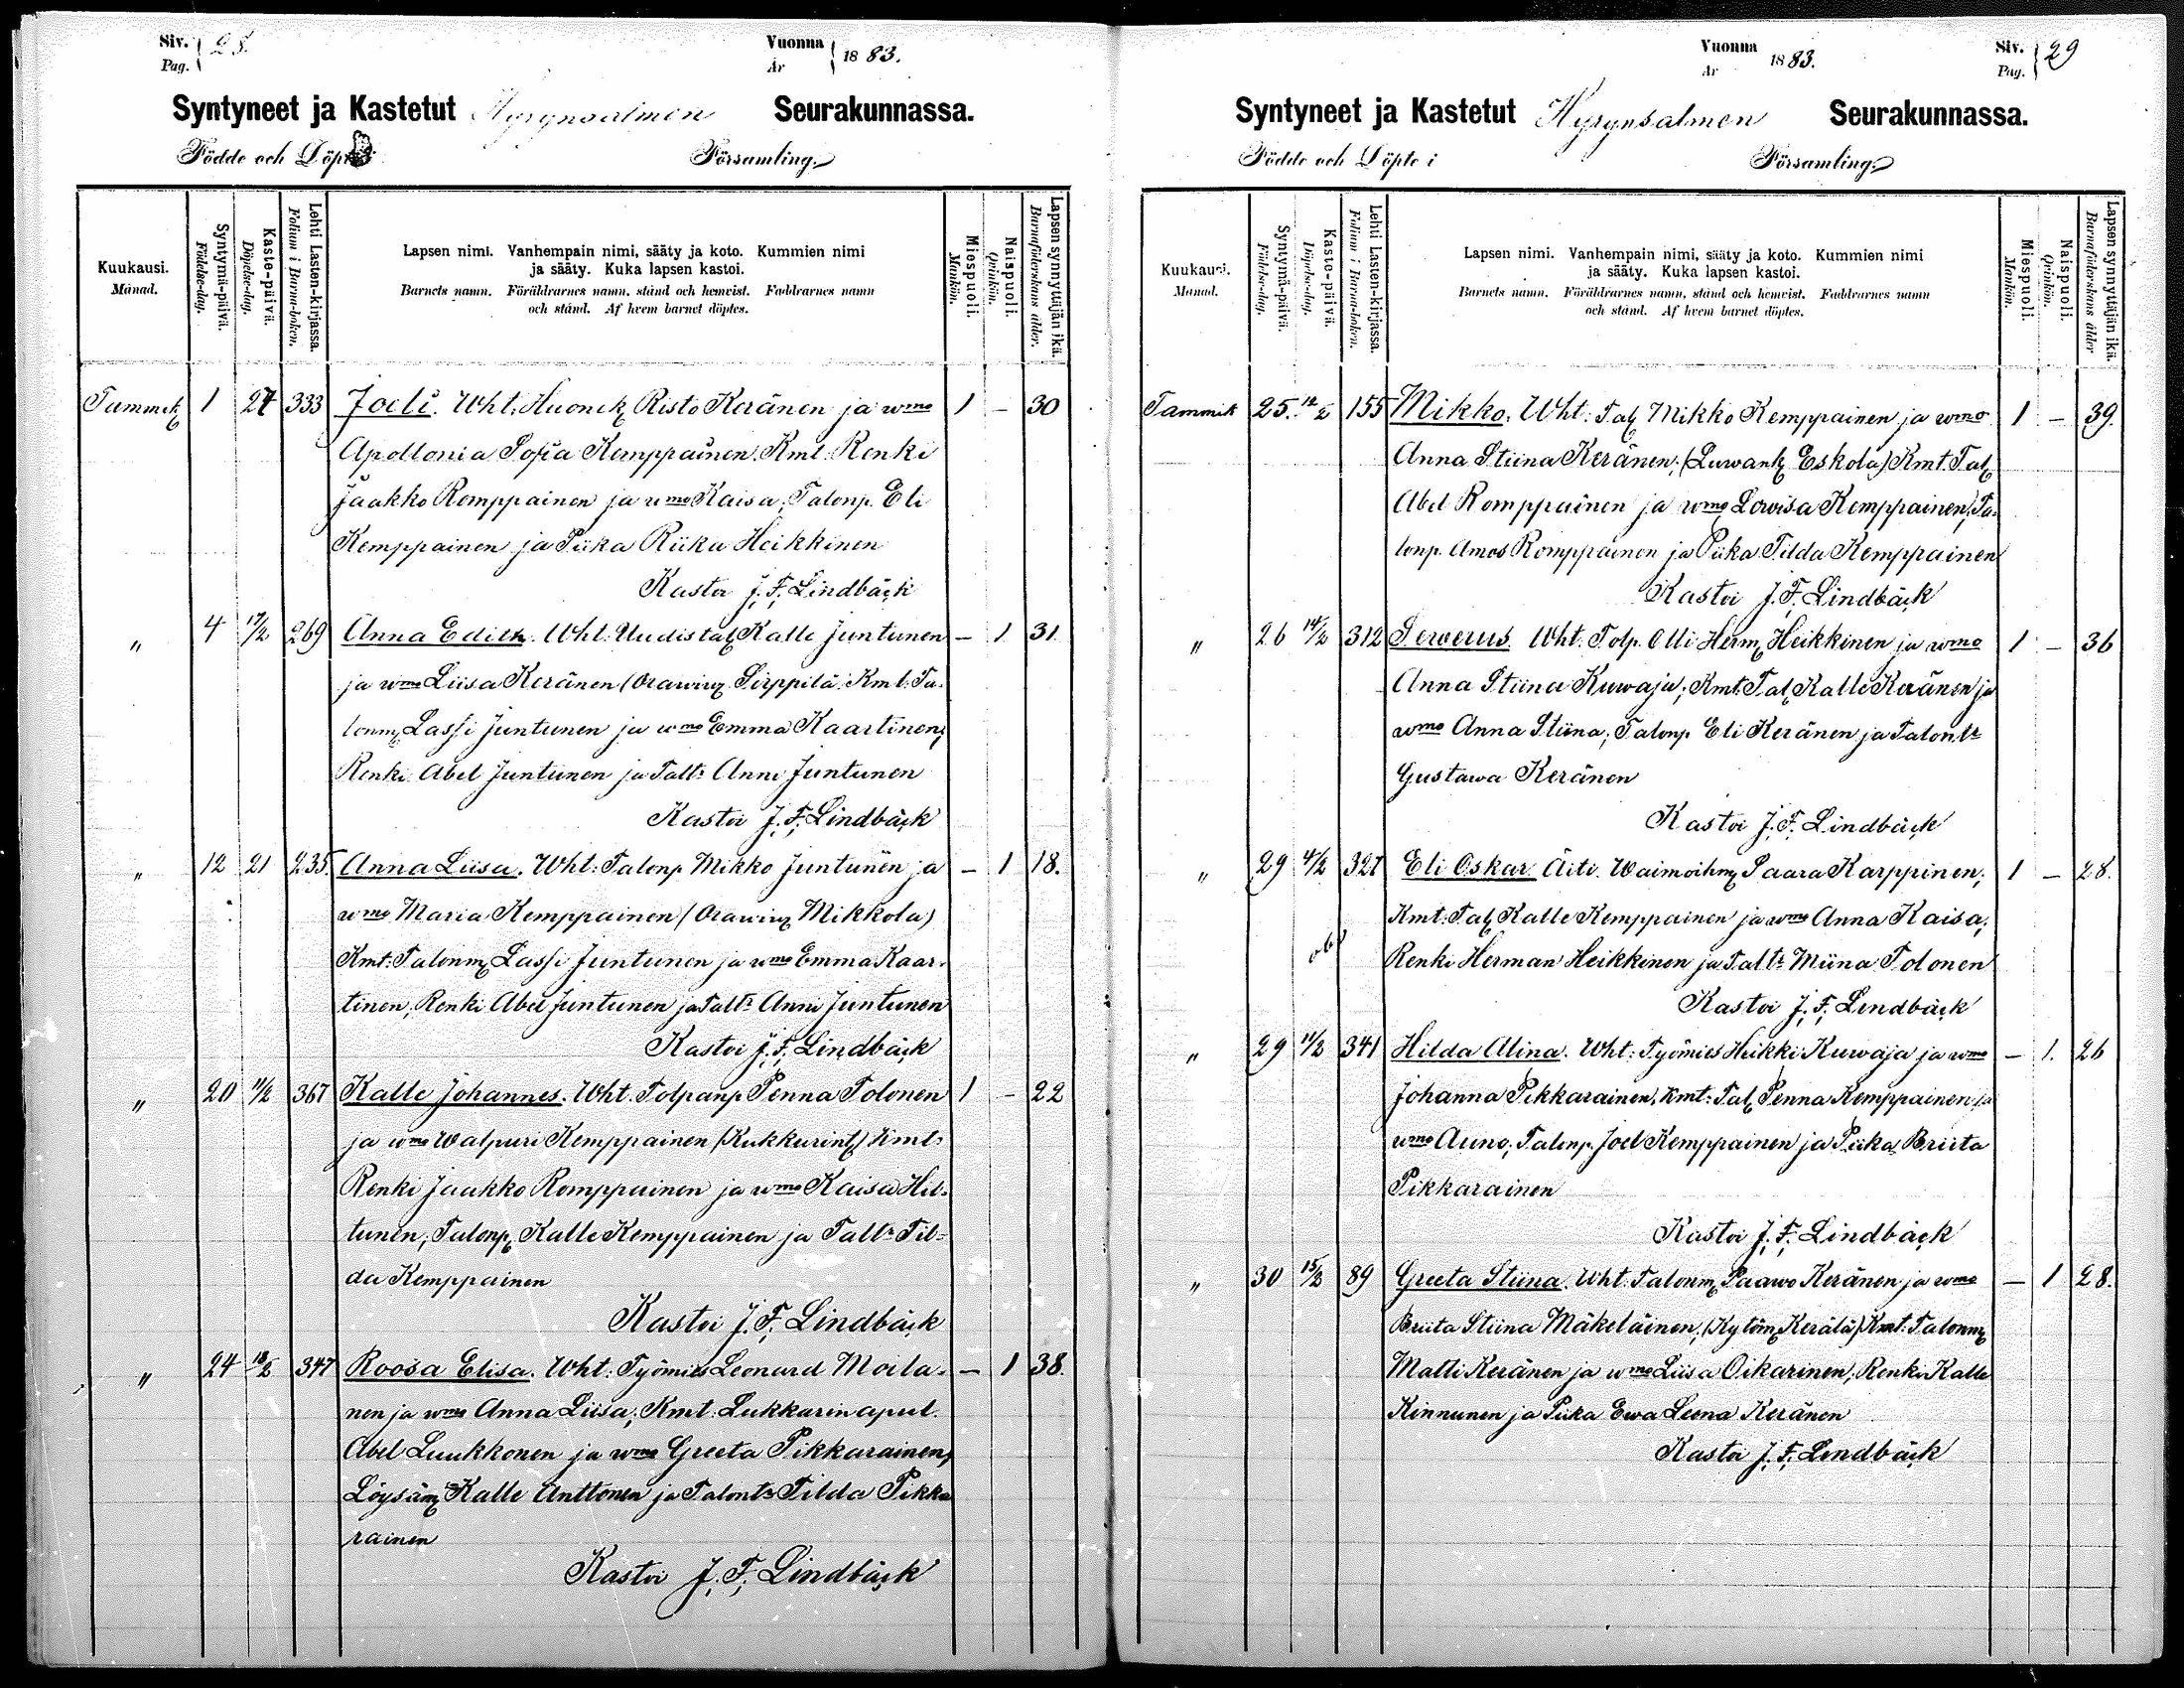 Siv. Pag. 28.
Vuonna År 1883.
Syntyneet ja Kastetut Hyrynsalmen Seurakunnassa.
Födde och Döpte i Församling.
Kuukausi. Månad.
Syntymä-päivä. Födelse-dag.
Kaste-päivä. Döpelse-dag.
Lehti Lasten-kirjassa. Folium i Barna-boken.
Lapsen nimi. Vanhempain nimi, sääty ja koto. Kummien nimi
ja sääty. Kuka lapsen kastoi.
Barnets namn. Föräldrarnes namn, stånd och hemvist. Faddrarnes namn
och stånd. Af hvem barnet döptes.
Miespuoli. Mankön.
Naispuoli. Qvinkön.
Lapsen synnyttäjän ikä. Barnaföderskans ålder.
Tammik 1 27 333 Joeli. Wht. Huonek Risto Keränen ja wmo 1 – 30
Apollonia Sofia Kemppainen. Kmt. Renki
Jaakko Romppainen ja wmo Kaisa; Talonp. Eli
Kemppainen ja Piika Riika Heikkinen
Kastoi J. F. Lindbäck
" 4 17/2 269 Anna Edith. Wht. Uudistal Kalle Juntunen – 1 31
ja wmo Liisa Keränen (Orawiw Sirppilä. Kmt. Ta-
lonm Lassi Juntunen ja wmo Emma Kaartinen;
Renki Abel Juntunen ja Taltr Anni Juntunen
Kastoi J. F. Lindbäck
" 12 21 235. Anna Liisa. Wht: Talonp Mikko Juntunen ja – 1 18.
wmo Maria Kemppainen (Orawiw Mikkola)
Kmt: Talonm Lassi Juntunen ja wmo Emma Kaar-
tinen; Renki Abel Juntunen ja Taltr Anni Juntunen
Kastoi J. F. Lindbäck
" 20 11/2 367 Kalle Johannes. Wht. Tolpanp Penna Tolonen 1 – 22
ja wmo Walpuri Kemppainen (Kukkurint) Kmt:
Renki Jaakko Romppainen ja wmo Kaisa Hil-
tunen; Talonp Kalle Kemppainen ja Taltr Til-
da Kemppainen
Kastoi J. F. Lindbäck
" 24 18/2 347 Roosa Elisa. Wht: Työmies Leonard Moila- – 1 38.
nen ja wmo Anna Liisa; Kmt. Lukkarin apul.
Abel Luukkonen ja wmo Greeta Pikkarainen,
Löysäm Kalle Anttonen ja Talontr Tilda Pikka
rainen
Kastoi J. F. Lindbäck
Vuonna År 1883.
Siv. Pag. 29
Syntyneet ja Kastetut Hyrynsalmen Seurakunnassa.
Födde och Döpte i Församling.
Kuukausi. Månad.
Syntymä-päivä. Födelse-dag.
Kaste-päivä. Döpelse-dag.
Lehti Lasten-kirjassa. Folium i Barna-boken.
Lapsen nimi. Vanhempain nimi, sääty ja koto. Kummien nimi
ja sääty. Kuka lapsen kastoi.
Barnets namn. Föräldrarnes namn, stånd och hemvist. Faddrarnes namn
och stånd. Af hvem barnet döptes.
Miespuoli. Mankön.
Naispuoli. Qvinkön.
Lapsen synnyttäjän ikä. Barnaföderskans ålder
Tammik 25. 12/2 155 Mikko. Wht: Tal Mikko Kemppainen ja wmo 1 – 39.
Anna Stiina Keränen; (Luwank Eskola) Kmt. Tal
Abel Romppainen ja wmo Lowisa Kemppainen; Ta-
lonp. Amos Romppainen ja Piika Tilda Kemppainen
Kastoi J. F. Lindbäck
" 26 14/2 312 Sewerus. Wht: Tolp. Olli Herm Heikkinen ja wmo 1 – 36
Anna Stiina Kuwaja; Kmt. Tal Kalle Keränen ja
wmo Anna Stiina; Talonp Eli Keränen ja Talontr
Gustawa Keränen
Kastoi J. F. Lindbäck
" 29 4/2 327 Eli Oskar. Äiti. Waimoihm Saara Karppinen; 1 – 28.
Kmt: Tal Kalle Kemppainen ja wmo Anna Kaisa;
Renki Herman Heikkinen ja Taltr Miina Tolonen
Kastoi J. F. Lindbäck
" 29 11/2 341 Hilda Alina. Wht: Työmies Heikki Kuwaja ja wmo – 1. 26
Johanna Pikkarainen. Kmt: Tal Penna Kemppainen ja
wmo Auno; Talonp. Joel Kemppainen ja Piika Briita
Pikkarainen
Kastoi J. F. Lindbäck
" 30 15/2 89 Greeta Stiina. Wht: Talonm Paawo Keränen ja wmo – 1 28.
Briita Stiina Mäkeläinen; (Kytöm Kerälä) Kmt: Talonm
Matti Keränen ja wmo Liisa Oikarinen; Renki Kalle
Kinnunen ja Piika Ewa Leena Keränen
Kastoi J. F. Lindbäck